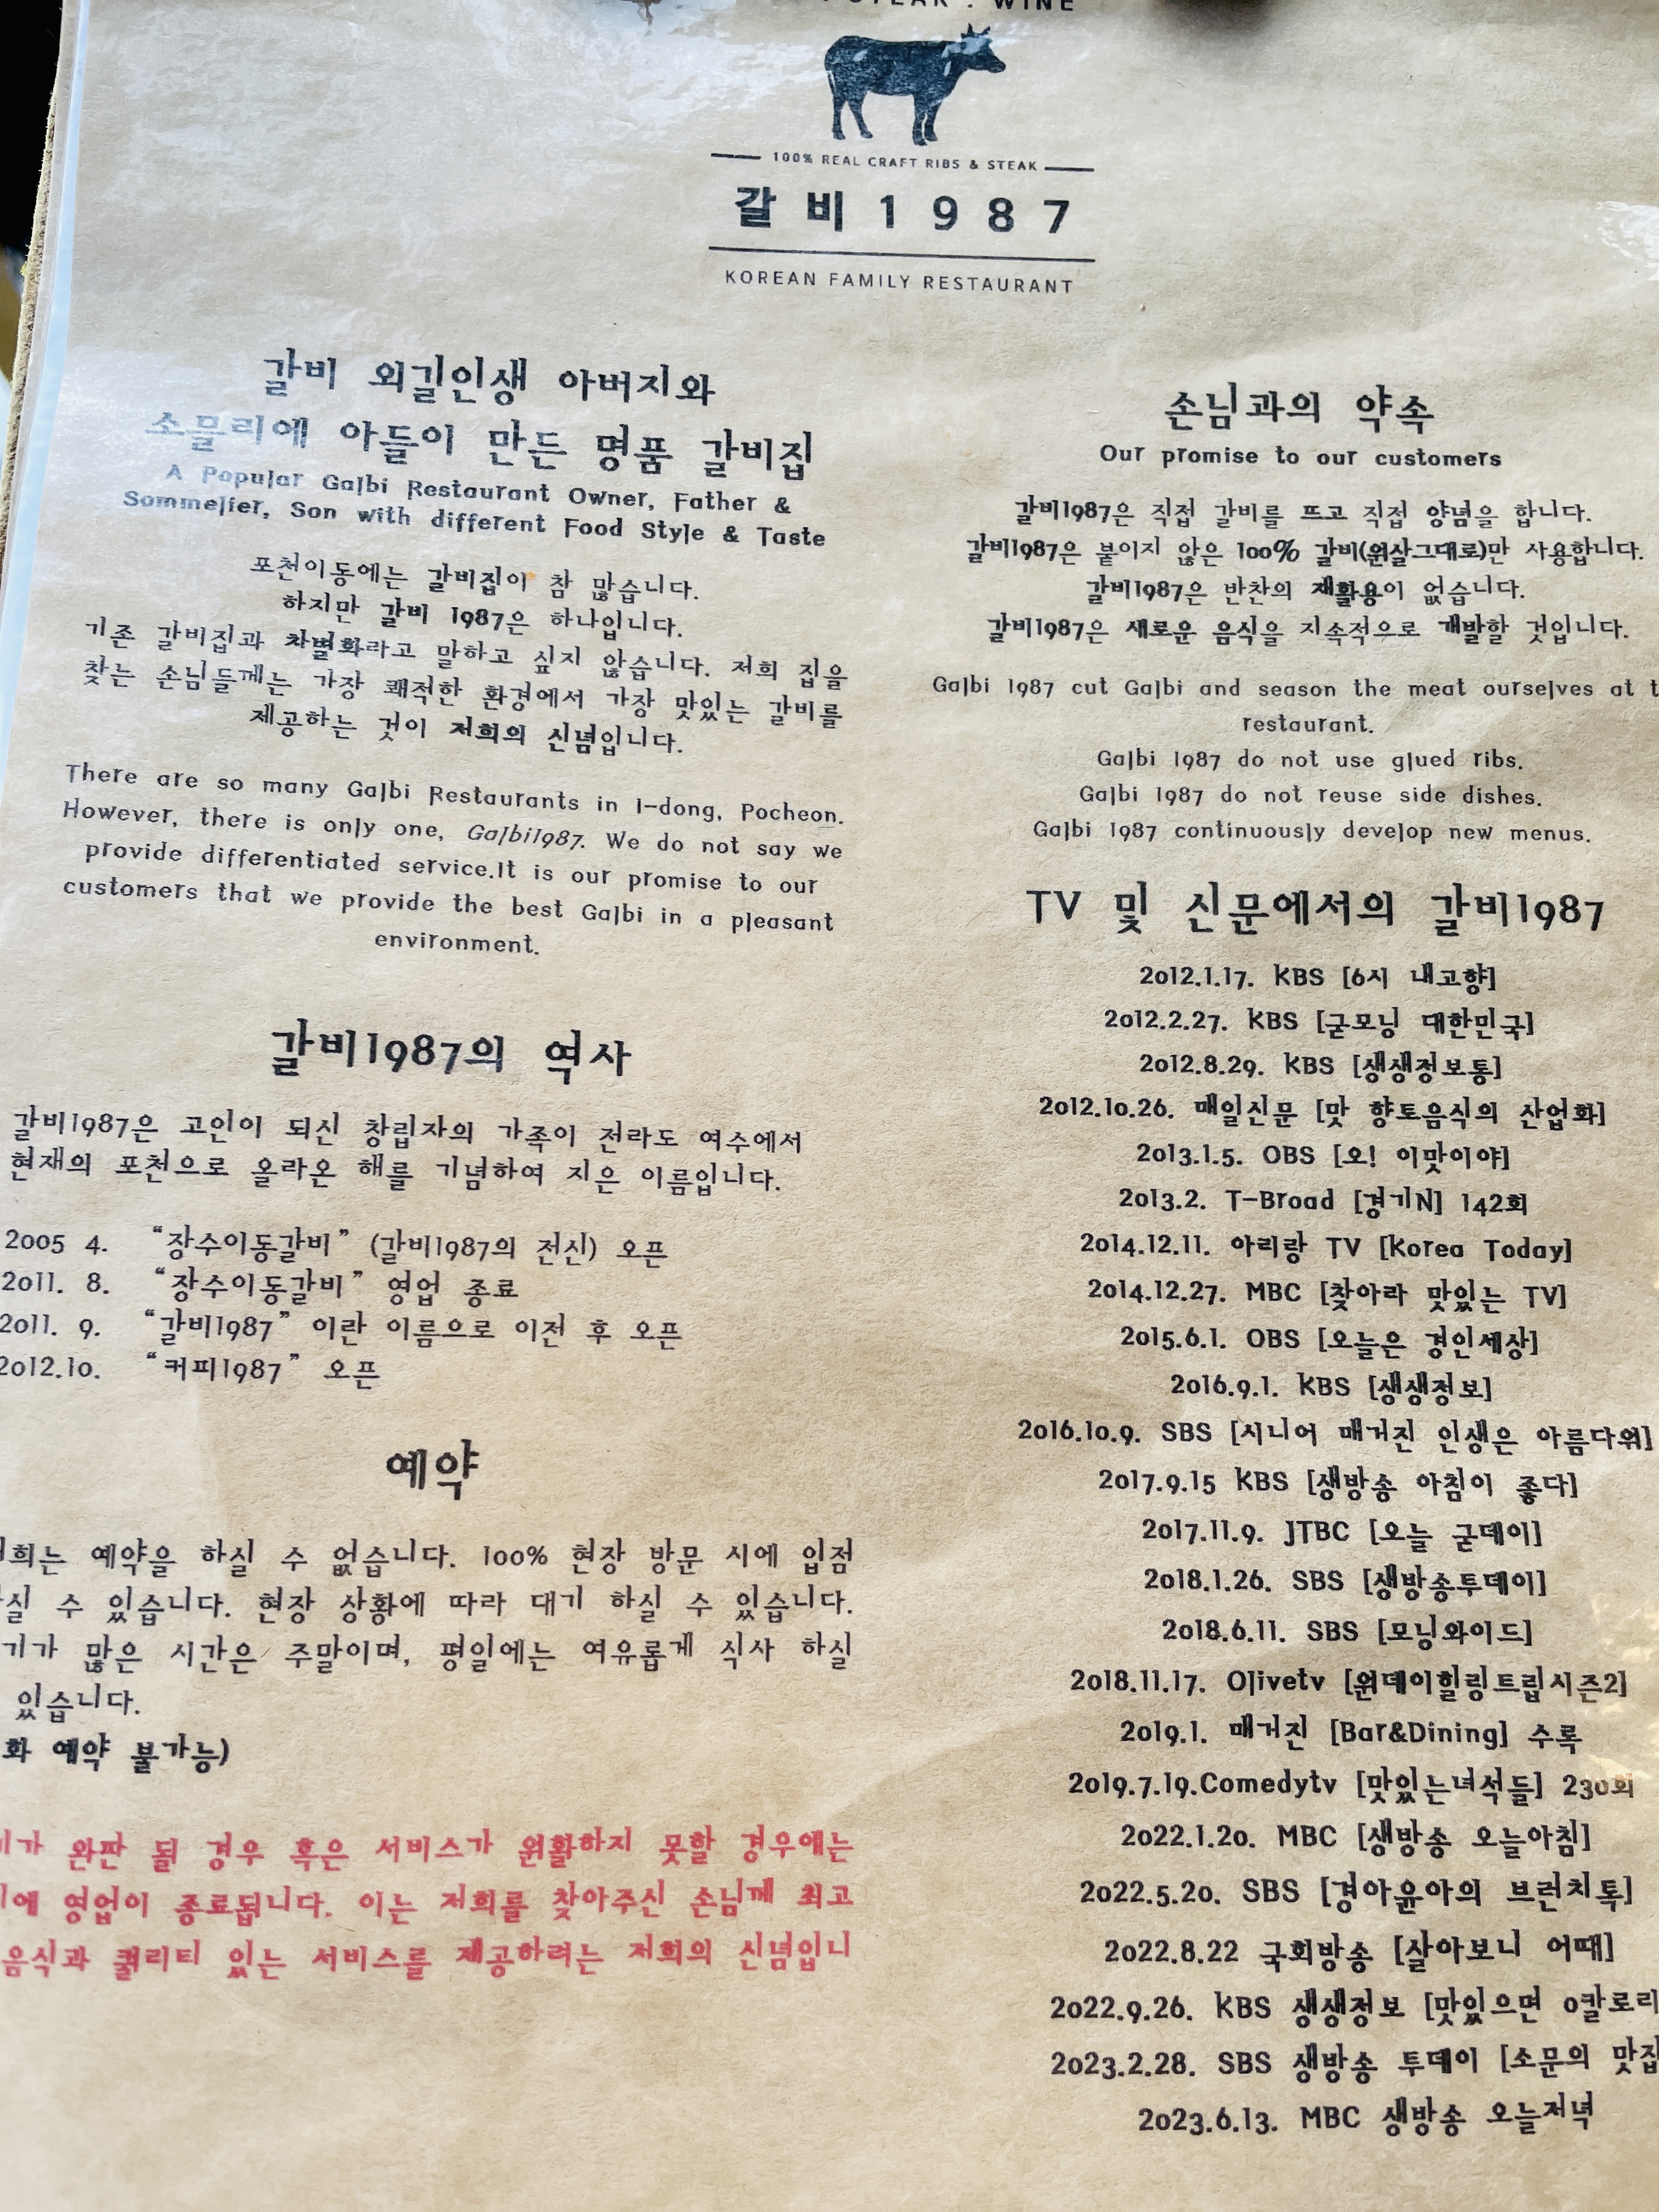 STEAK . WINE
100% REAL CRAFT RIBS & STEAK
갈비1987
KOREAN FAMILY RESTAURANT
갈비 외길인생 아버지와
소믈리에 아들이 만든 명품 갈비집
A Popular Galbi Restaurant Owner, Father &
Sommelier, Son with different Food Style & Taste
포천이동에는 갈비집이 참 많습니다.
하지만 갈비 1987은 하나입니다.
기존 갈비집과 차별화라고 말하고 싶지 않습니다. 저희 집을
찾는 손님들께는 가장 쾌적한 환경에서 가장 맛있는 갈비를
제공하는 것이 저희의 신념입니다.
There are so many Galbi Restaurants in I-dong, Pocheon.
However, there is only one, Galbi1987. We do not say we
provide differentiated service.It is our promise to our
customers that we provide the best Galbi in a pleasant
environment.
갈비1987의 역사
갈비1987은 고인이 되신 창립자의 가족이 전라도 여수에서
현재의 포천으로 올라온 해를 기념하여 지은 이름입니다.
2005 4. “장수이동갈비” (갈비1987의 전신) 오픈
2011. 8. “장수이동갈비” 영업 종료
2011. 9. “갈비1987” 이란 이름으로 이전 후 오픈
2012.10. “커피1987” 오픈
예약
희는 예약을 하실 수 없습니다. 100% 현장 방문 시에 입점
실 수 있습니다. 현장 상황에 따라 대기 하실 수 있습니다.
기가 많은 시간은 주말이며, 평일에는 여유롭게 식사 하실
있습니다.
화 예약 불가능)
가 완판 될 경우 혹은 서비스가 원활하지 못할 경우에는
에 영업이 종료됩니다. 이는 저희를 찾아주신 손님께 최고
음식과 퀄리티 있는 서비스를 제공하려는 저희의 신념입니
손님과의 약속
Our promise to our customers
갈비1987은 직접 갈비를 뜨고 직접 양념을 합니다.
갈비1987은 붙이지 않은 100% 갈비(원살그대로)만 사용합니다.
갈비1987은 반찬의 재활용이 없습니다.
갈비1987은 새로운 음식을 지속적으로 개발할 것입니다.
Galbi 1987 cut Galbi and season the meat ourselves at t
restaurant.
Galbi 1987 do not use glued ribs.
Galbi 1987 do not reuse side dishes.
Galbi 1987 continuously develop new menus.
TV 및 신문에서의 갈비1987
2012.1.17. KBS [6시 내고향]
2012.2.27. KBS [굳모닝 대한민국]
2012.8.29. KBS [생생정보통]
2012.10.26. 매일신문 [맛 향토음식의 산업화]
2013.1.5. OBS [오! 이맛이야]
2013.2. T-Broad [경기N] 142회
2014.12.11. 아리랑 TV [Korea Today]
2014.12.27. MBC [찾아라 맛있는 TV]
2015.6.1. OBS [오늘은 경인세상]
2016.9.1. KBS [생생정보]
2016.10.9. SBS [시니어 매거진 인생은 아름다워]
2017.9.15 KBS [생방송 아침이 좋다]
2017.11.9. JTBC [오늘 굳데이]
2018.1.26. SBS [생방송투데이]
2018.6.11. SBS [모닝와이드]
2018.11.17. Olivetv [원데이힐링트립시즌2]
2019.1. 매거진 [Bar&Dining] 수록
2019.7.19.Comedytv [맛있는녀석들] 230회
2022.1.20. MBC [생방송 오늘아침]
2022.5.20. SBS [경아윤아의 브런치톡]
2022.8.22 국회방송 [살아보니 어때]
2022.9.26. KBS 생생정보 [맛있으면 0칼로리
2023.2.28. SBS 생방송 투데이 [소문의 맛집
2023.6.13. MBC 생방송 오늘저녁